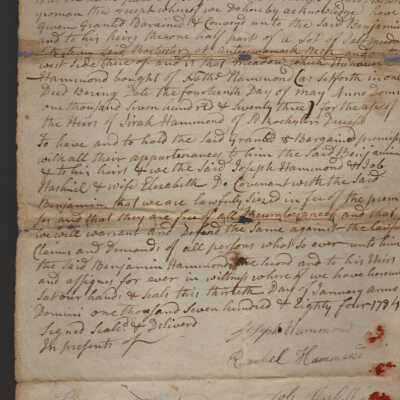 yeoman the receipt whereof we do hereby acknowledge have
Given Granted Bargained & Convaid unto the Said Benjamin
and to his heirs the one half part of a Lot of Salt meadow
in Said Rochester at
west Side there of and is that meadow which
Hammond bought of Hammond Sefforth in one
Died Bering Date the fourteenth Day of may Anno Dom
one thousand Seven hundred & Seventy three for the use of
the Heirs of Hammond of Rochester Deceasd
To have and to hold the Said Granted & Bargaind premis
with all their appurtenances to him the Said Benjamin
& to his heirs & we the Said Joseph Hammond &
& wife Elizabeth Do Covenant with the Said
Benjamin that we are lawfully Seized in fee of the prem
and that they are free of all Incumbrances and that
we will warrant and Defend the Same against the lawfu
Claims and Demands of all persons what so ever unto him
the Said Benjamin Hammond and to his Heirs
and assigns for ever in witness where of we have hereun
Set our hands & Seals this Day of January anno
Domini one thousand Seven hundred & Eighty four 1784
Signed Seald & Deliverd
In presents of
Joseph Hammond
Hammond